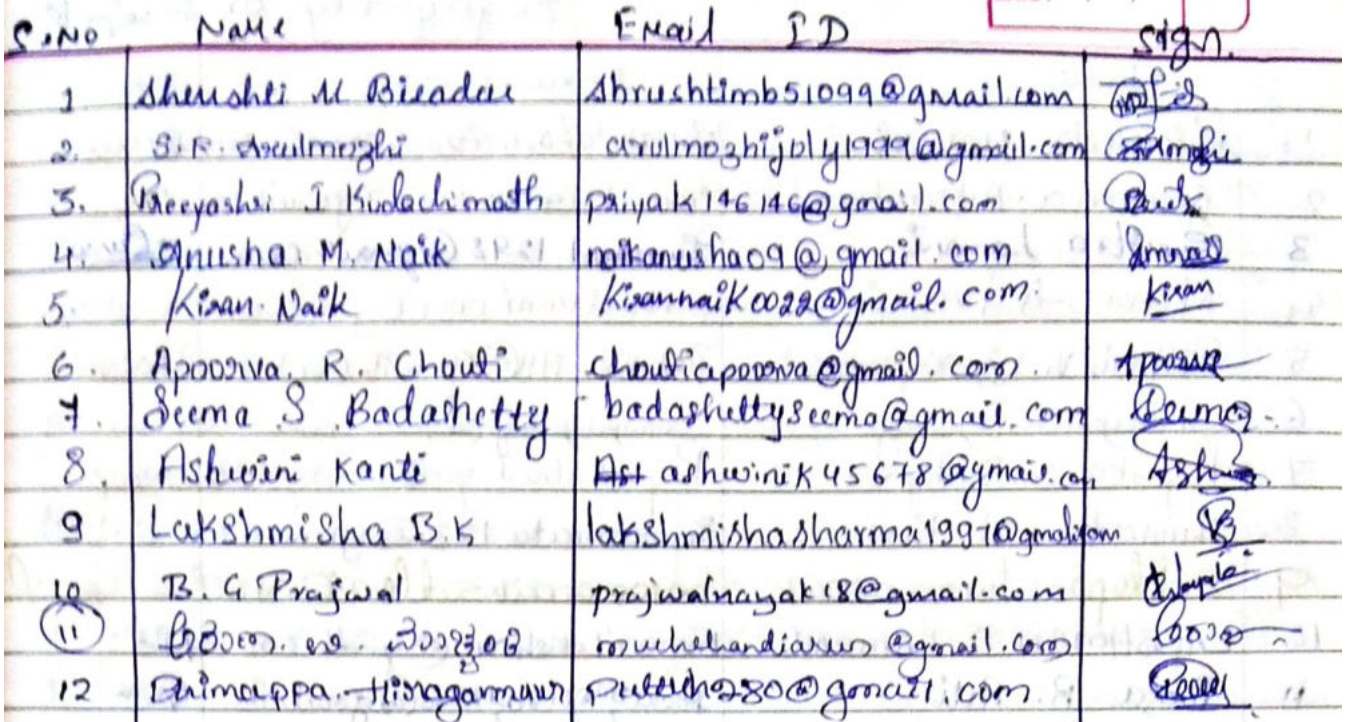 S.No Name Email ID Sign.
1 Shrushti M Biradar Shrushtimb51099@gmail.com
2. S.R. Arulmozhi arulmozhijoly1999@gmail.com
3. Preeyashri I Kudachimath priyak146146@gmail.com
4. Anusha M. Naik naikanusha09@gmail.com
5. Kiran Naik Kirannaik0022@gmail.com Kiran
6. Apoorva R. Chouti choutiapoorva@gmail.com Apoorva
7 Seema S Badashetty badashettyseema@gmail.com Seema
8. Ashwini Kanti ashwinik45678@gmail.com
9 Lakshmisha B.K lakshmishasharma1997@gmail.com
10 B. G Prajwal prajwalnayak18@gmail.com
11 @gmail.com
12 @gmail.com